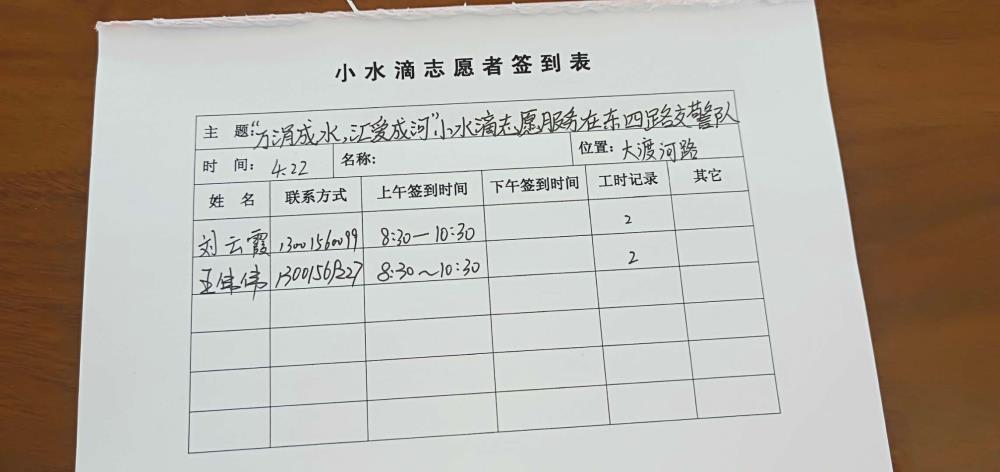 小水滴志愿者签到表
主 题:“万涓成水,汇爱成河”小水滴志愿服务在东四路交警队
时 间: 4.22 名称: 位置: 大渡河路
姓 名 联系方式 上午签到时间 下午签到时间 工时记录 其它
刘云霞 13001560099 8:30—10:30 2
王伟伟 8:30~10:30 2